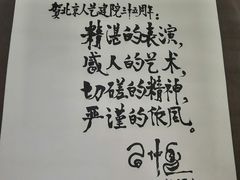 贺北京人艺建院三十五周年：
精湛的表演，
感人的艺术，
切磋的精神，
严谨的作风。